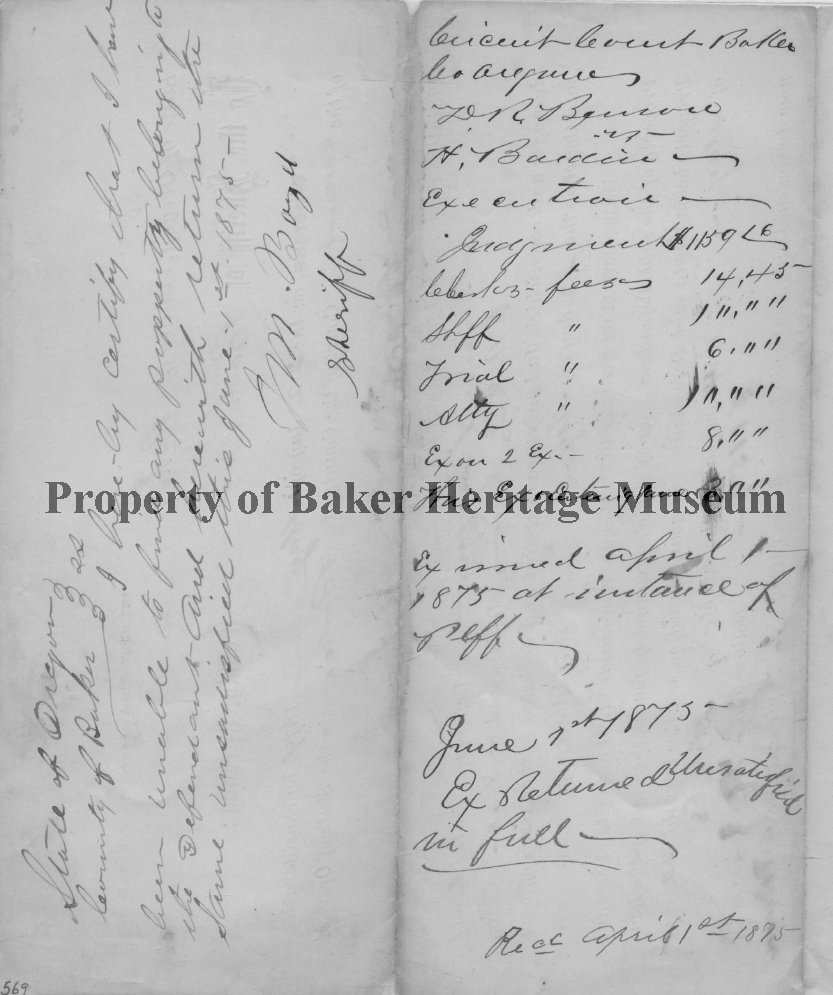 State of Oregon } ss
County of Baker } I here-by certify that I have
been unable to find any propperty belonging to
the Defendant and herewith return the
same unsatisfied this June 1st 1875—
J M. Boyd
Sheriff
Circuit Court Baker
Co Oregon
D R. Benson
vs
H, Bardin
Execution
Judgment $1159 26
Clerks fees 14,45
Shff " 1",""
Trial " 6.""
Atty " ",""
Ex on 2 Ex.- 8,""
This Ex
Property of Baker Heritage Museum
Ex issued april 1-
1875 at instance of
Plff
June 1st 1875-
Ex Returned Unsatisfied
in full
Recd April 1st 1875
569